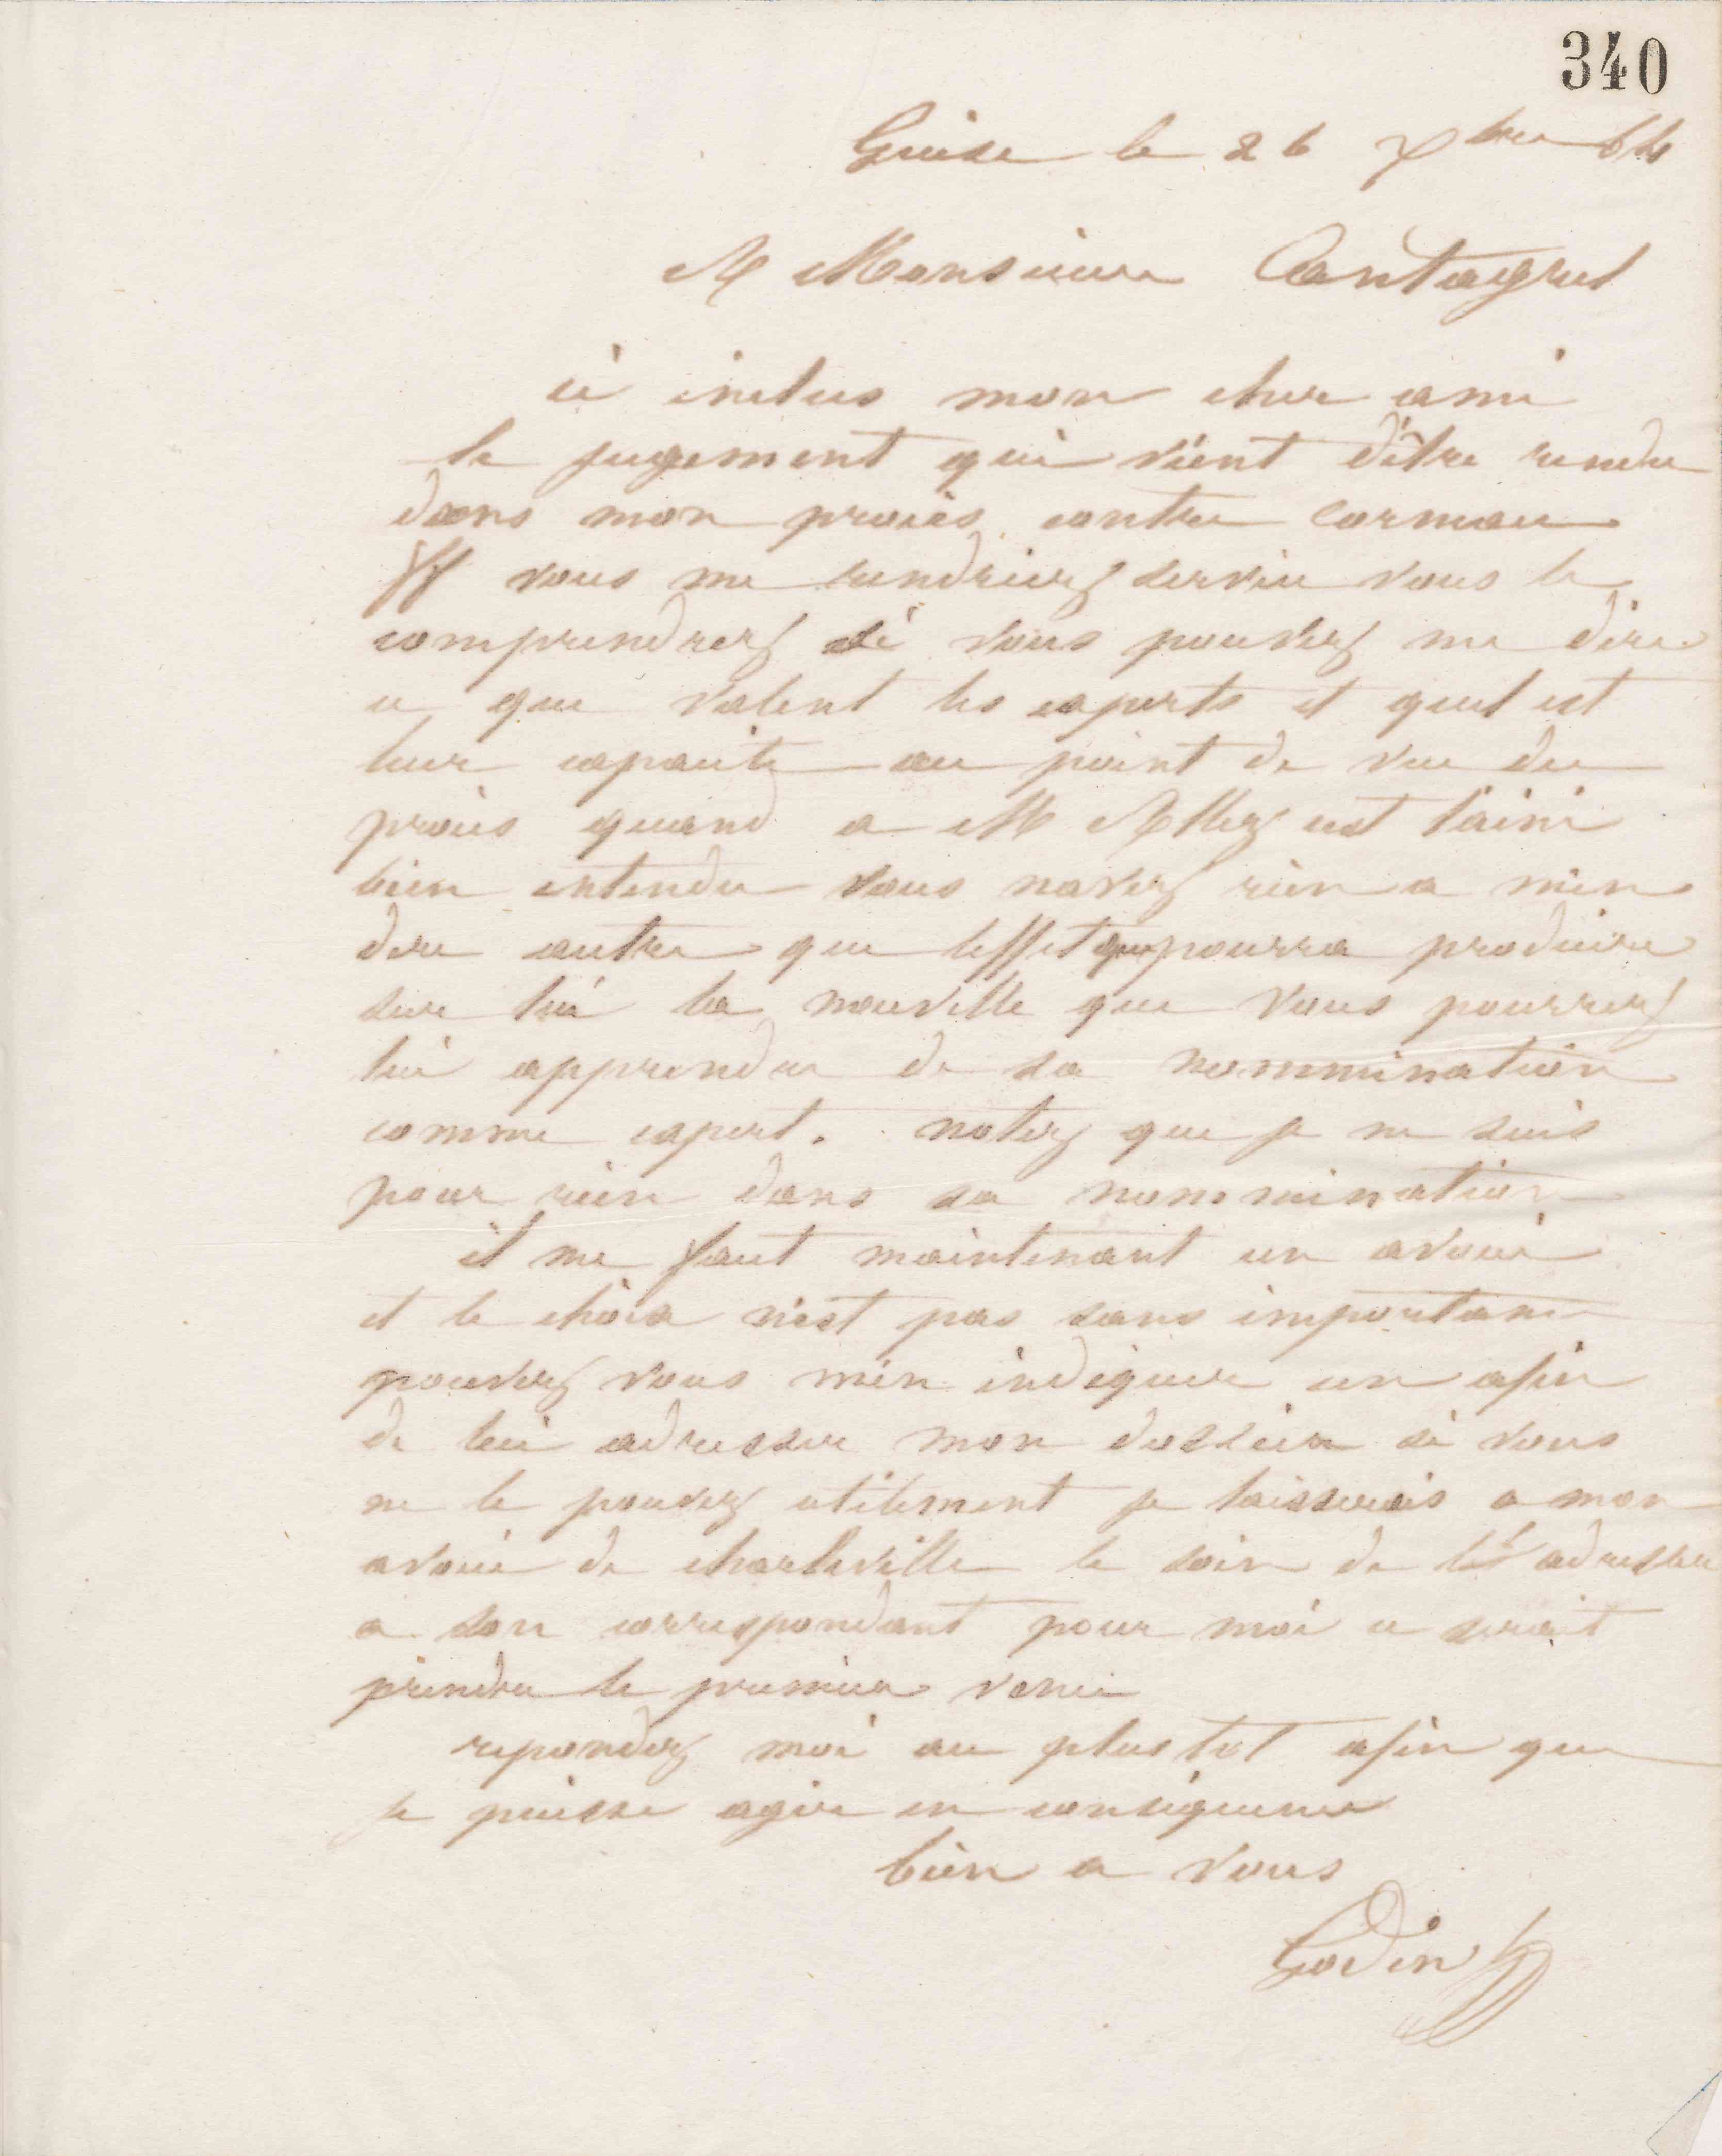 340
Guise le 26 Xbre 64
A Monsieur Cantagrel
ci inclus mon cher ami
le jugement qui vient d'être rendu
dans mon procès contre Corneau
vous me rendriez service vous le
comprendrez si vous pouvez me dire
ce que valent les experts et quel est
leur capacité au point de vue du
procès quand a M Allez ainé
bien entendu vous navez rien a men
dire autre que leffet que pourra produire
sur lui la nouvelle que vous pourrez
lui apprendre de sa nommination
comme expert. notez que je ne suis
pour rien dans sa nommination
il me faut maintenant un avoué
et le choix n'est pas sans importance
pouvez vous m'en indiquer un afin
de lui adresser mon dossier si vous
ne le pouvez utilement je laisserais a mon
avoué de charleville le soin de l'adresser
a son correspondant pour moi ce serait
prendre le premier venu
repondez moi au plus tot afin que
je puisse agir en conséquence
bien a vous
Godin